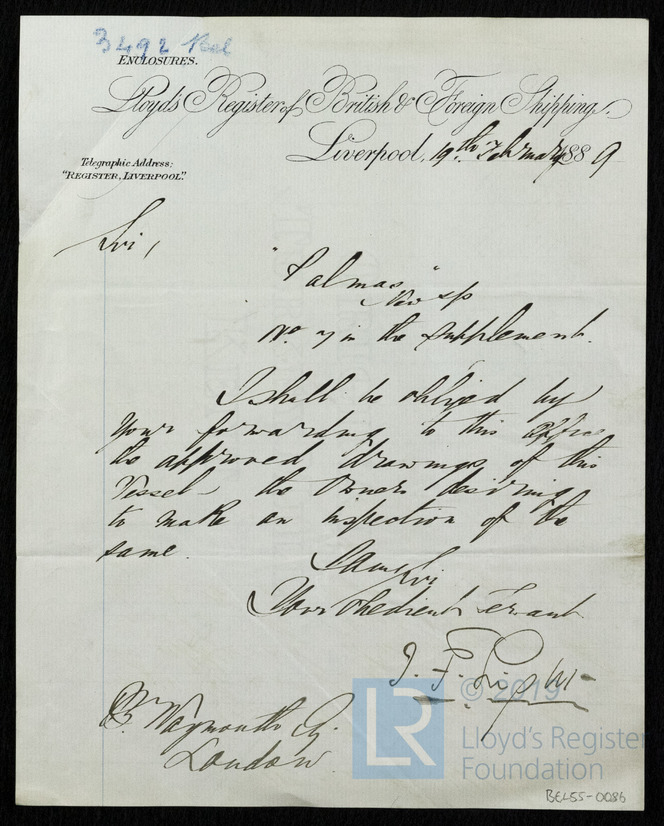 3492 Bel
ENCLOSURES.
Lloyd's Register of British & Foreign Shipping.
Liverpool, 19th February 1889
Telegraphic Address:
"REGISTER, LIVERPOOL."
Sir,
"Palmas"
New sp
No. 7 in the supplement.
I shall be obliged by
your forwarding to this office
the approved drawings of this
Vessel the Owners desiring
to make an inspection of the
same.
I am Sir
Your obedient Servant
J. F.
B. Waymouth Esq.
London
© 2019
LR
Lloyd's Register
Foundation
BEL55-0086